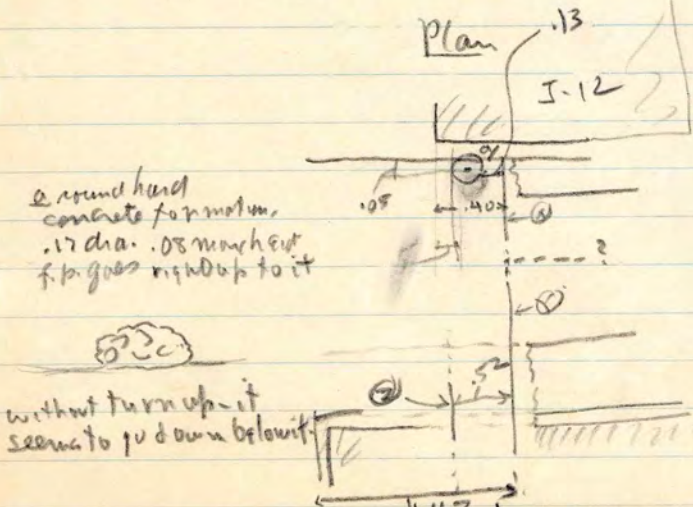 Plan
.13
J-12
a round hard
concrete formation.
.17 dia. .08 high
f.p. goes right up to it
.08
.40
?
without turn up - it
seems to go down below it.
.52